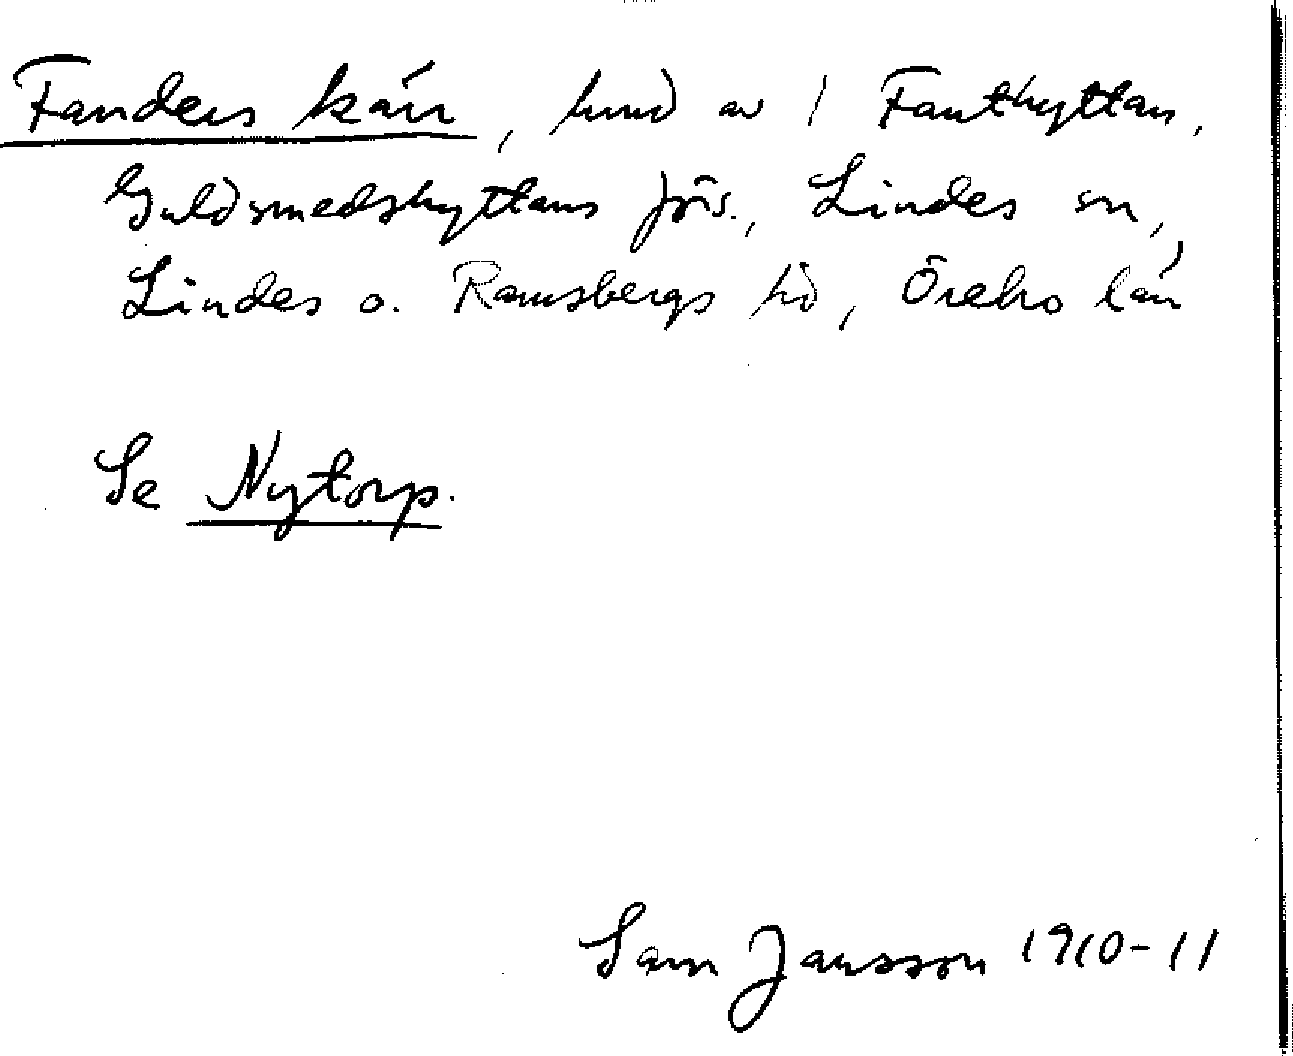 Fanders kärr, hmd av 1 Fanthyttan,
Guldsmedshyttans förs., Lindes sn,
Lindes o. Ramsbergs hd, Örebro län
Se Nytorp.
Sam Jansson 1910-11